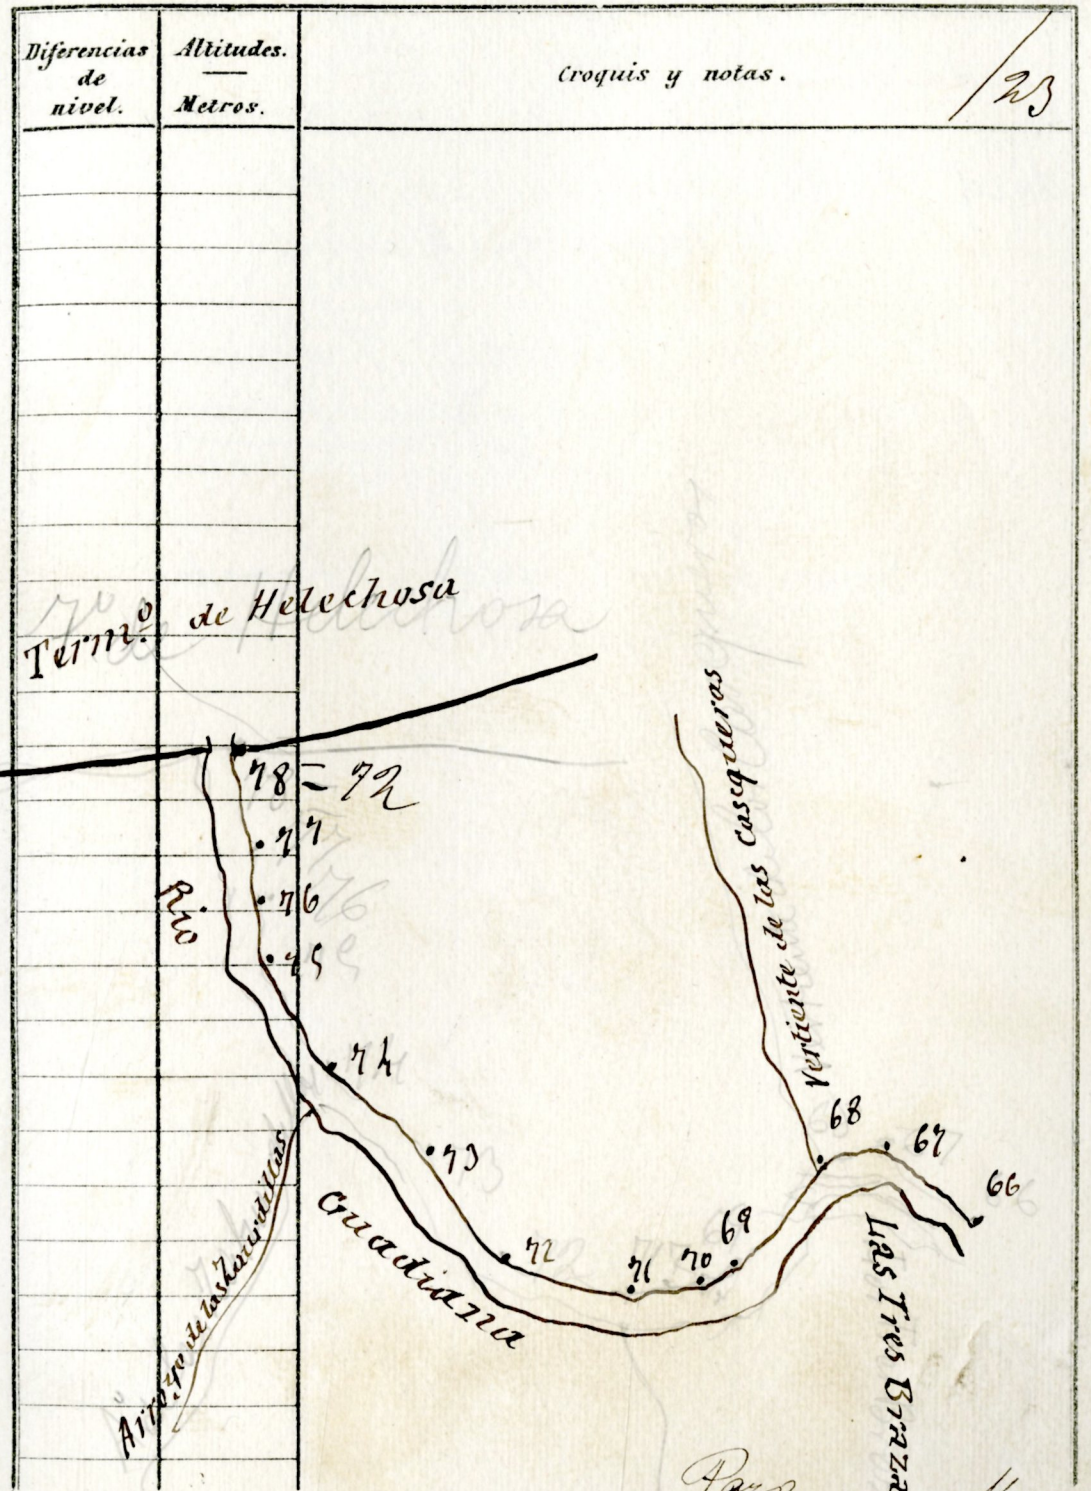 Diferencias de nivel.
Altitudes.
Metros.
Croquis y notas.
/23
Term.º de Helechosa
78 = 72
77
76
75
74
73
72
71
70
69
68
67
66
Rio
Guadiana
Vertiente de las Casqueras
Las Tres